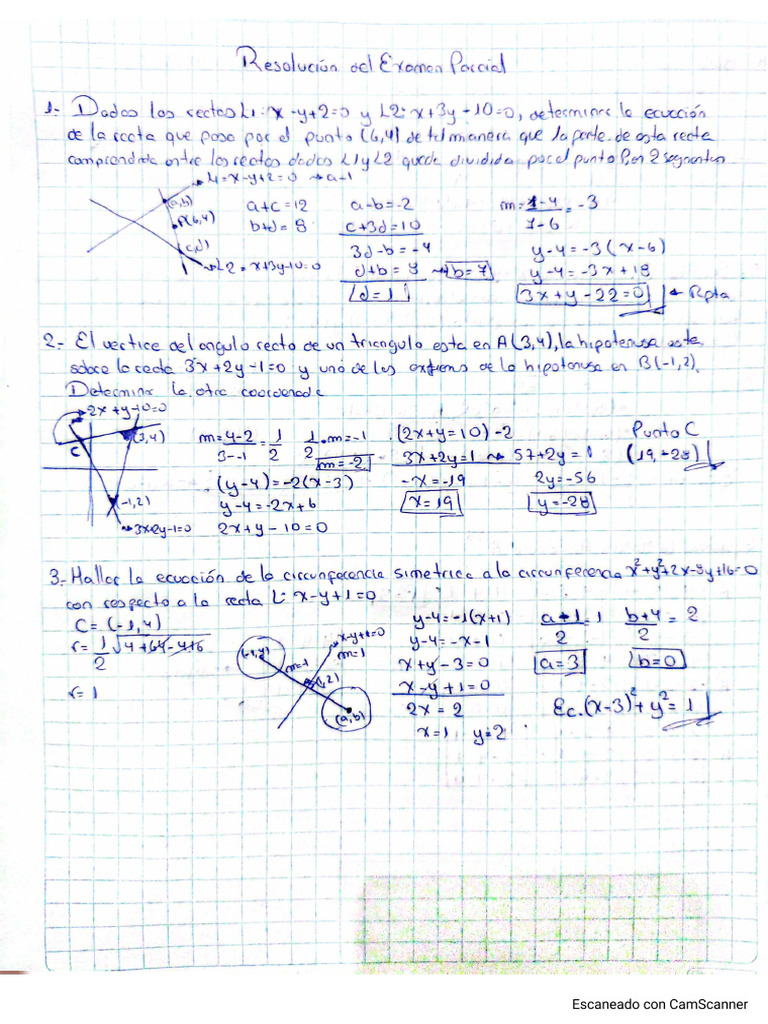 Resolución del Examen Parcial
1.- Dados las rectas L1: x-y+2=0 y L2: x+3y-10=0, determine la ecucción
de la recta que pasa por el punto (6,4) de tal manera que la parte de esta recta
comprendida entre las rectas dadas L1 y L2 quede dividida por el punto P, en 2 segmentos
L1=x-y+2=0 → a-1
(a,b)
P(6,4)
(c,d)
L2 = x+3y-10=0
a+c=12
b+d=8
a-b=-2
c+3d=10
3d-b=-4
d+b=8 → b=7
d=1
m=1-4/7-6=-3
y-4=-3(x-6)
y-4=-3x+18
3x+y-22=0 ← Rpta
2.- El vertice del angulo recto de un triangulo esta en A(3,4), la hipotenusa esta
sobre la recta 3x+2y-1=0 y uno de los extremos de la hipotenusa en B(-1,2).
Determine la otra coordenada
2x+y-10=0
(3,4)
C
(-1,2)
3x+2y-1=0
m=4-2/3--1=1/2
1/2.m=-1
m=-2
(y-4)=-2(x-3)
y-4=-2x+6
2x+y-10=0
(2x+y=10)-2
3x+2y=1 → 57+2y=1
-x=-19
x=19
2y=-56
y=-28
Punto C
(19,-28)
3.- Hallar la ecucción de la circunferencia simetrica a la circunferencia x²+y²+2x-8y+16=0
con respecto a la recta L: x-y+1=0
C=(-1,4)
r=1/2√4+64-4·16
r=1
(-1,4)
x-y+1=0
m=1
(1,2)
(a,b)
y-4=-1(x+1)
y-4=-x-1
x+y-3=0
x-y+1=0
2x=2
x=1 y=2
a+-1/2=1
b+4/2=2
a=3
b=0
Ec. (x-3)²+y²=1
Escaneado con CamScanner